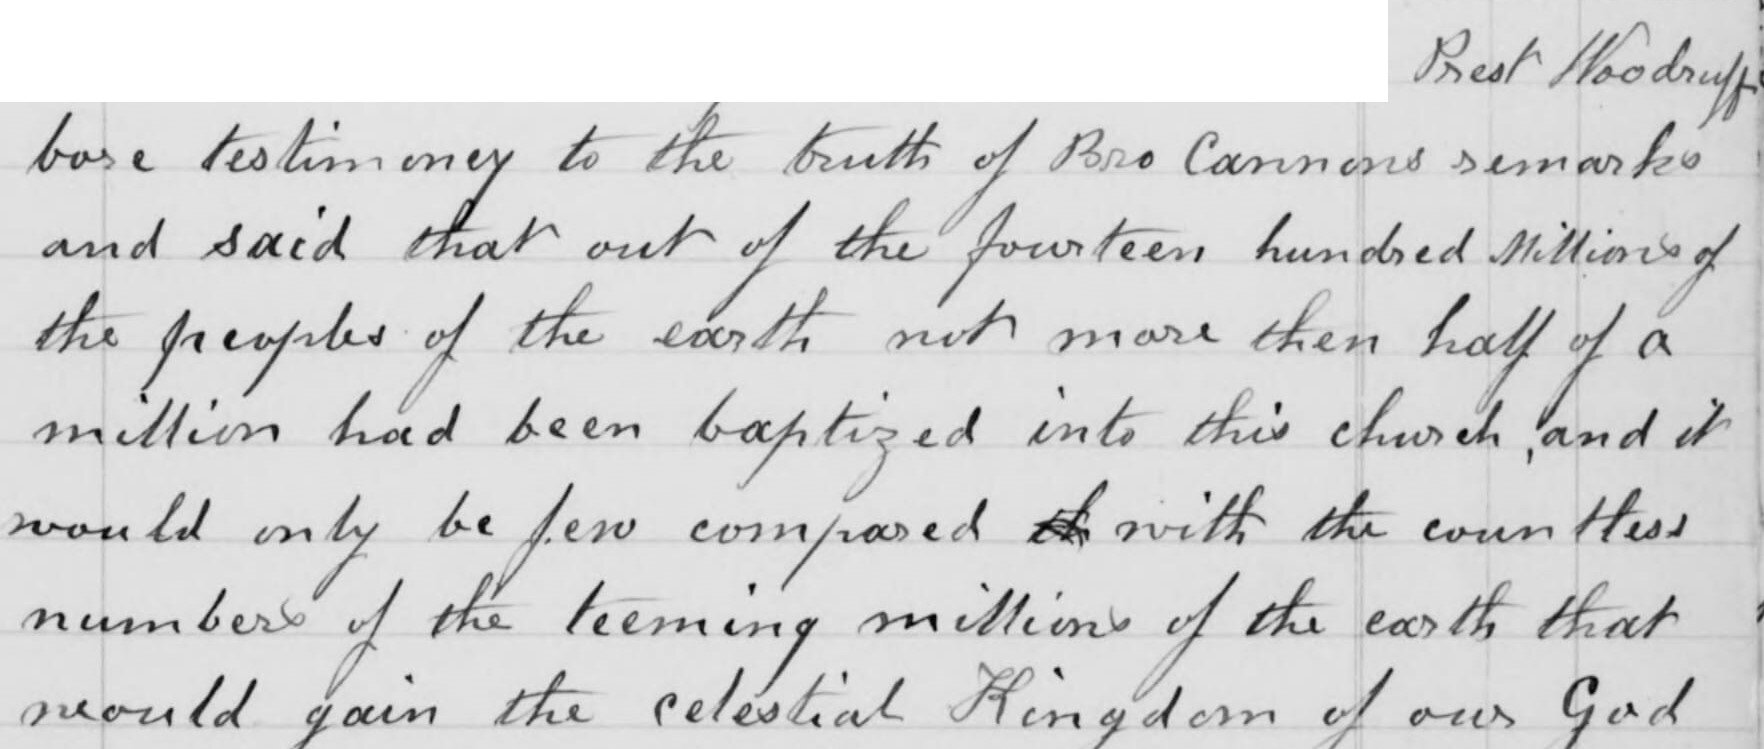 Prest Woodruff
bore testimoney to the truth of Bro Cannons remarks
and said that out of the fourteen hundred Millions of
the peoples of the earth not more then half of a
million had been baptized into this church, and it
would only be few compared with the countless
numbers of the teeming millions of the earth that
would gain the celestial Kingdom of our God